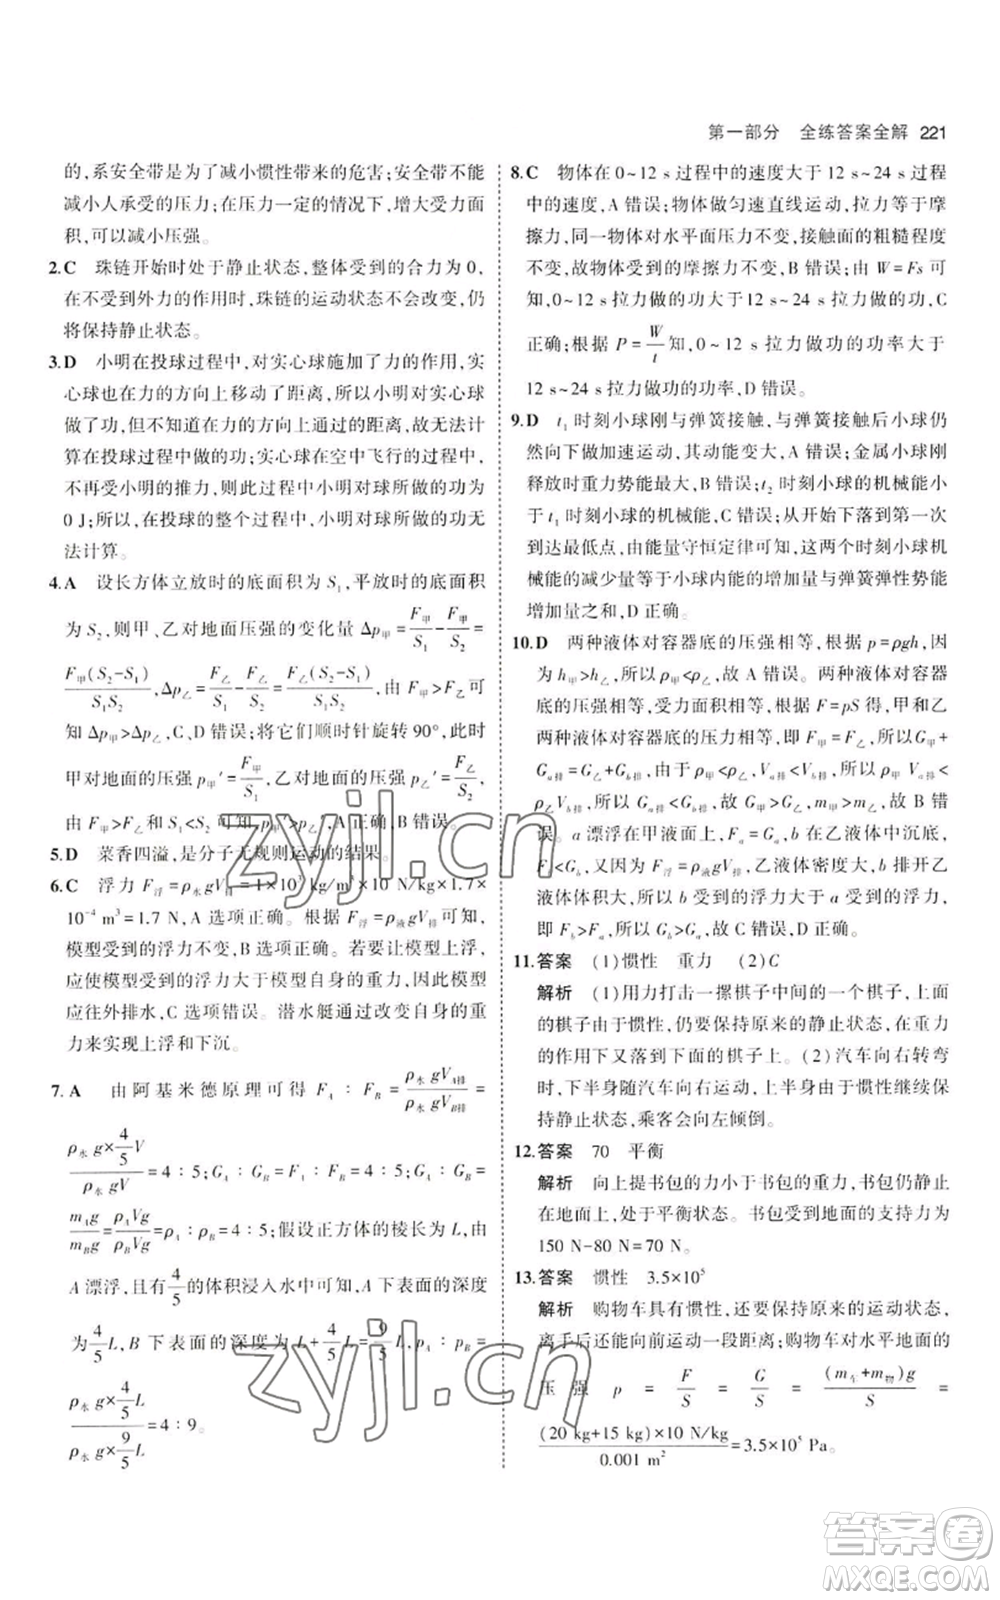 第一部分 全练答案全解 221
的,系安带是为了减小惯性带来的危害,不能
减小人承受的压力;在压力一定的情况下,增大受力面
积,可以减小压强。
2.C 珠链开始时处于静止状态,整体受到的合力为0,
在不受到外力的作用时,珠链的运动状态不会改变,仍
将保持静止状态。
3.D 小明在投球过程中,对实心球施加了力的作用,实
心球也在力的方向上移动了距离,所以小明对球
做了功,但不知道在力的方向上通过的距离,故无法计
算在投球过程中做的功;实心球在空中飞行的过程中,
不再受小明的推力,则此过程中小明对球所做的功为
0 J;所以,在投球的整个过程中,小明对球所做的功无
法计算。
4.A 设长方体立放时的底面积为 S₁,平放时的底面积
为 S₂,则甲、乙对地面压强的变化量 Δp甲=F甲/S₁-F甲/S₂=
F甲(S₂-S₁)/S₁S₂,Δp乙=F乙/S₁-F乙/S₂=F乙(S₂-S₁)/S₁S₂,由 F甲>F乙可
知 Δp甲>Δp乙,C、D错误;将它们顺时针旋转 90°,此时
甲对地面的压强 p甲′=F甲/S₁,乙对地面的压强 p乙′=F乙/S₂,
由 F甲>F乙和 S₁<S₂ 可知 p甲′>p乙′,A正确,B错误。
5.D 菜香四溢,是分子无规则运动的结果。
6.C 浮力 F浮=ρ水gV排=1×10³ kg/m³×10 N/kg×1.7×
10⁻⁴ m³=1.7 N,A选项正确。根据 F浮=ρ液gV排可知,
模型受到的浮力不变,B选项正确。若要让模型上浮,
应使模型受到的浮力大于模型自身的重力,因此模型
应往外排水,C选项错误。潜水艇通过改变自身的重
力来实现上浮和下沉。
7.A 由阿基米德原理可得 F_A∶F_B=ρ水gV_A排/ρ水gV_B排=
(ρ水g×4/5V)/(ρ水gV)=4∶5;G_A∶G_B=F_A∶F_B=4∶5;G_A∶G_B=
m_Ag/m_Bg=ρ_AVg/ρ_BVg=ρ_A∶ρ_B=4∶5;假设正方体的棱长为 L,由
A漂浮,且有4/5的体积浸入水中可知,A下表面的深度
为4/5L,B下表面的深度为 L+4/5L=9/5L,p_A∶p_B=
(ρ水g×4/5L)/(ρ水g×9/5L)=4∶9。
8.C 物体在0~12 s过程中的速度大于12 s~24 s过程
中的速度,A错误;物体做匀速直线运动,拉力等于摩
擦力,同一物体对水平面压力不变,接触面的粗糙程度
不变,故物体受到的摩擦力不变,B错误;由 W=Fs可
知,0~12 s拉力做的功大于12 s~24 s拉力做的功,C
正确;根据 P=W/t知,0~12 s拉力做功的功率大于
12 s~24 s拉力做功的功率,D错误。
9.D t₁时刻小球刚与弹簧接触,与弹簧接触后小球仍
然向下做加速运动,其动能变大,A错误;金属小球刚
释放时重力势能最大,B错误;t₂时刻小球的机械能小
于t₁时刻小球的机械能,C错误;从开始下落到第一次
到达最低点,由能量守恒定律可知,这两个时刻小球机
械能的减少量等于小球内能的增加量与弹簧弹性势能
增加量之和,D正确。
10.D 两种液体对容器底的压强相等,根据 p=ρgh,因
为 h甲>h乙,所以 ρ甲<ρ乙,故A错误。两种液体对容器
底的压强相等,受力面积相等,根据 F=pS得,甲和乙
两种液体对容器底的压力相等,即 F甲=F乙,所以G甲+
Ga排=G乙+Gb排,由于 ρ甲<ρ乙,Va排<Vb排,所以 ρ甲Va排<
ρ乙Vb排,所以 Ga排<Gb排,故 G甲>G乙,m甲>m乙,故 B 错
误。a漂浮在甲液面上,Fa=Ga,b在乙液体中沉底,
Fb<Gb,又因为 F浮=ρ液gV排,乙液体密度大,b排开乙
液体体积大,所以 b受到的浮力大于 a受到的浮力,
即 Fb>Fa,所以 Gb>Ga,故C错误,D正确。
11.答案 (1)惯性 重力 (2)C
解析 (1)用力打击一摞棋子中间的一个棋子,上面
的棋子由于惯性,仍要保持原来的静止状态,在重力
的作用下又落到下面的棋子上。(2)汽车向右转弯
时,下半身随汽车向右运动,上半身由于惯性继续保
持静止状态,乘客会向左倾倒。
12.答案 70 平衡
解析 向上提书包的力小于书包的重力,书包仍静止
在地面上,处于平衡状态。书包受到地面的支持力为
150 N-80 N=70 N。
13.答案 惯性 3.5×10⁵
解析 购物车具有惯性,还要保持原来的运动状态,
离手后还能向前运动一段距离;购物车对水平地面的
压强 p=F/S=G/S=(m车+m物)g/S=
(20 kg+15 kg)×10 N/kg/0.001 m²=3.5×10⁵ Pa。
zyjl.cn
zyjl.cn
答案圈
MXQE.COM